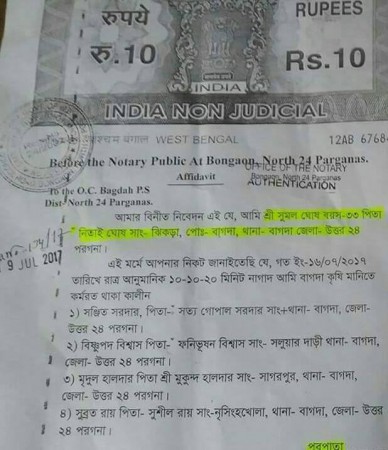 रुपये
RUPEES
रु.10
Rs.10
INDIA
INDIA NON JUDICIAL
পশ্চিমবঙ্গ पश्चिम बंगाल WEST BENGAL
12AB 6768
Before the Notary Public At Bongaon, North 24 Parganas.
OFFICE OF THE NOTARY
Bongaon, North 24 Parganas
Affidavit
AUTHENTICATION
To the O.C. Bagdah P.S
Dist- North 24 Parganas.
আমার বিনীত নিবেদন এই যে, আমি শ্রী সুমল ঘোষ বয়স-৩৩ পিতা
নিতাই ঘোষ সাং- ঝিকড়া, পোঃ- বাগদা, থানা- বাগদা জেলা- উত্তর ২৪
পরগনা।
9 JUL 2017
এই মর্মে আপনার নিকট জানাইতেছি যে, গত ইং-১৬/০৭/২০১৭
তারিখে রাত্র আনুমানিক ১০-১০-২০ মিনিট নাগাদ আমি বাগদা কৃষি মানিতে
কর্মরত থাকা কালীন
১) সঞ্জিত সরদার, পিতা- ঁ সত্য গোপাল সরদার সাং+থানা- বাগদা, জেলা-
উত্তর ২৪ পরগনা।
২) বিষ্ণুপদ বিশ্বাস পিতা- ঁ ফনিভূষন বিশ্বাস সাং- সলুয়ার দাড়ী থানা- বাগদা,
জেলা- উত্তর ২৪ পরগনা।
৩) মৃদুল হালদার পিতা শ্রী মুকুন্দ হালদার সাং- সাগরপুর, থানা- বাগদা,
জেলা- উত্তর ২৪ পরগনা।
৪) সুব্রত রায় পিতা- সুশীল রায় সাং-নৃসিংহখোলা, থানা- বাগদা, জেলা- উত্তর
২৪ পরগনা।
পরপাতা